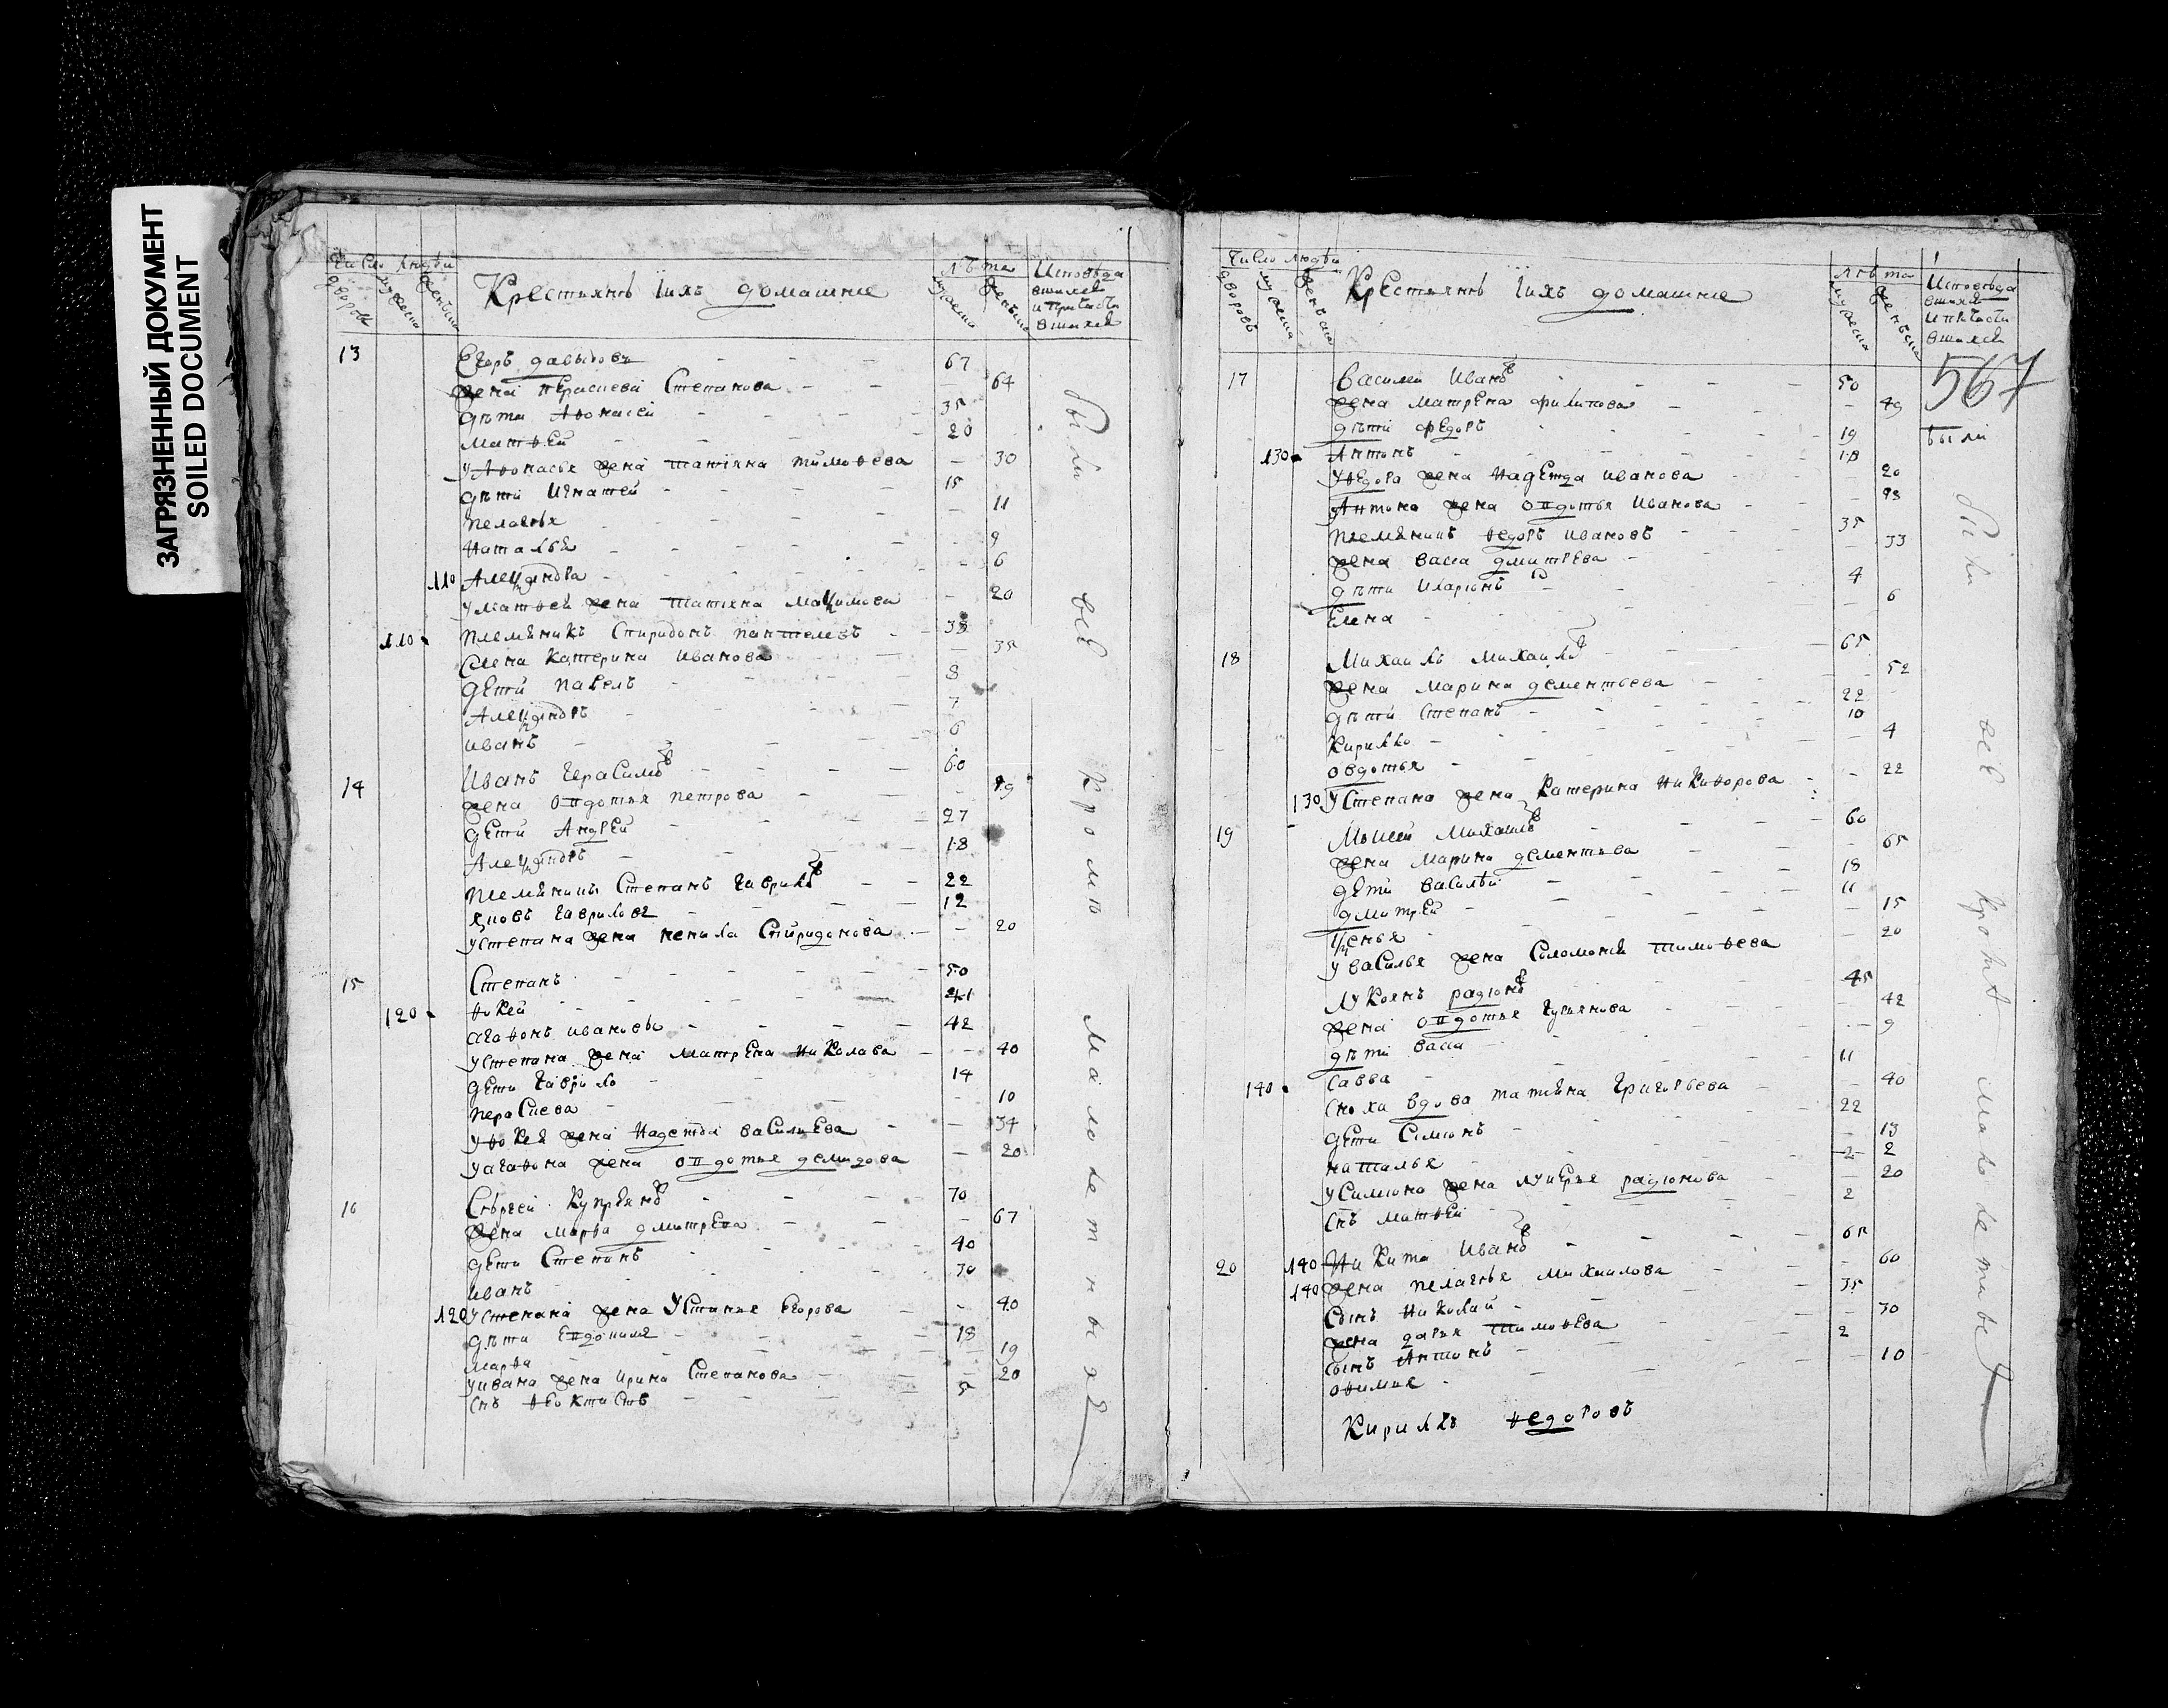 ЗАГРЯЗНЕННЫЙ ДОКУМЕНТ
SOILED DOCUMENT
Число людей
дворовъ
мужеска
женъска
Крестьянѣ їихъ домашние
лѣта
мужеска
женъска
Исповѣда
вшихсѧ
и причасти
вшихсѧ
13 Егоръ давыдовъ 67
жена Парасцева Степанова 64
дѣти Аѳонасей 35
Матѳей 20
У Аѳонасья жена татіяна тимоѳева 30
дѣти Игнатей 15
пелагѣя 11
наталья 9
110 Алеѯандра 6
у матѳея жена татіяна Маѯимова 20
110 племяникъ Спиридонъ пантелевъ 33
жена Катерина иванова 35
дети павелъ 8
Алеѯандръ 7
иванъ 6
14 Иванъ герасимовъ 60
жена Овдотья петрова 49
дети Андрей 27
Алеѯандръ 18
племяницы Степанъ гавриловъ 22
яковъ гавриловъ 12
у степана жена ненила Спиридонова 20
15 Степанъ 50
120 ѳокей 41
агаѳонъ ивановы 42
у степана жена матрена николава 40
дети гаврило 14
парасцева 10
у ѳокея жена надежда васильева 34
у агаѳона жена овдотья демидова 20
16 Сѣргей Купреяновъ 70
жена марѳа дмитрева 67
дети Степанъ 40
иванъ 30
120 у степана жена Устинья егорова 40
дѣти Евдокимъ 18
марѳа 19
у ивана жена ирина Степанова 20
снъ ѳеоктистъ 5
были всѣ кромѣ малолетныхъ
Число людей
дворовъ
мужеска
женъска
Крестьянѣ їихъ домашние
лѣта
мужеска
женъска
Исповѣда
вшихсѧ
и причасти
вшихсѧ
567
17 Василей Ивановъ 50
жена матрена филипова 49
дѣти ѳедоръ 19 были
130 Антонъ 18
У ѳедора жена надежда иванова 20
Антона жена овдотья иванова 23
племяникъ ѳедоръ ивановъ 35
жена васса дмитрева 33
дѣти иларіонъ 4
елена 6
18 Михаилъ михаиловъ 65
жена марина дементьева 52
дѣти степанъ 22
кирилло 10
овдотья 4
130 У Степана жена катерина никиѳорова 22
19 Моисей михаиловъ 60
жена марина дементьева 65
дети василей 18
дмитрей 11
ѯенья 15
у василья жена Соломонея тимоѳева 20
Лукоянъ радіоновъ 45
жена овдотья 42
дѣти васса 9
140 савва 11
сноха вдова татіяна григорьева 40
дети Симіонъ 22
наталья 13
2 2
у симіона жена лукерья радіонова 20
снъ матѳей 2
20 140 Никита Ивановъ 60
140 жена пелагѣя михаилова 60
сынъ николай 35
жена дарья тимоѳева 30
сынъ Антонъ 2
оѳимия 10
кирилъ ѳедоровъ
были всѣ кромѣ малолетныхъ